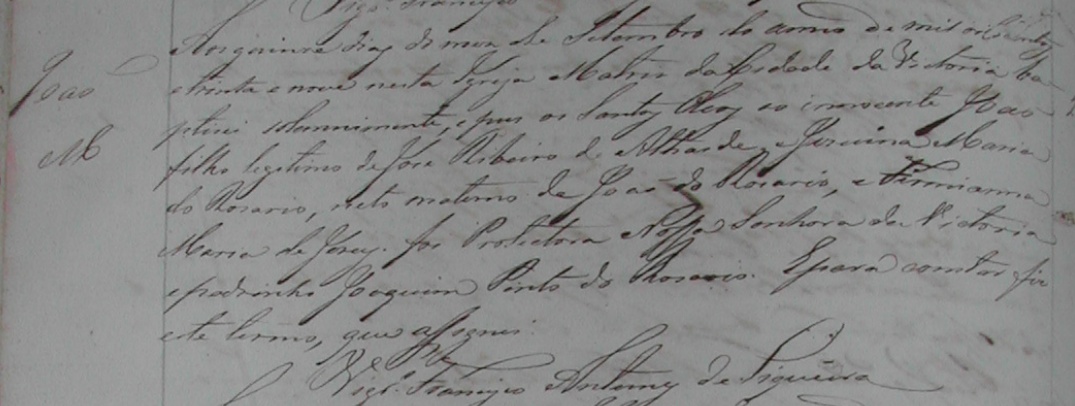 Vigr.º Francisco
Aos quinze dias do mez de Setembro do anno de mil oitocentos
João
e trinta e nove nesta Igreja Matriz da Cidade da Victoria ba
ptisei solennimente, e puz os Santos Oleos ao innocente João
M
filho legitimo de José Ribeiro de Athaide, e Jesuina Maria
do Rosario, neto materno de João do Rosario, e Firmianna
Maria de Jesus. foi Protectora Nossa Senhora da Victoria
e padrinho Joaquim Pinto do Rosario. E para constar fiz
este termo, que assignei.
Vigr.º Francisco Antunes de Siqueira